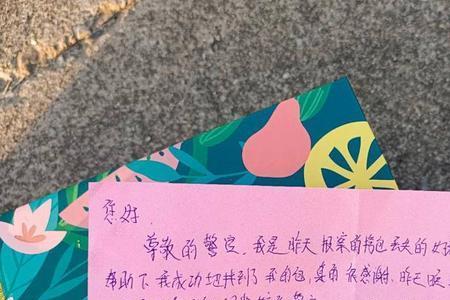 您好
尊敬的警官,我是昨天报案的挎包丢失的女
帮助下我成功地找到了我的包,真的很感谢,昨天